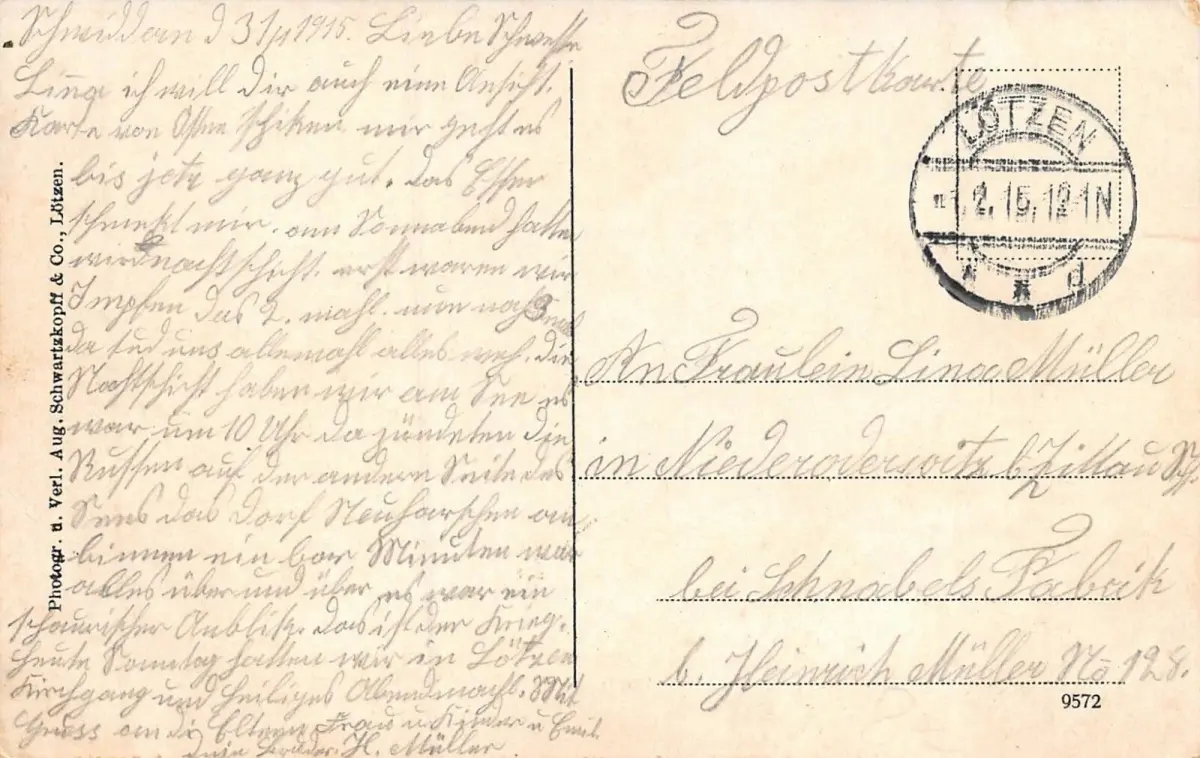 Schwiddern d 31/1 1915. Liebe Schweste
Lina ich will dir auch eine Ansicht.
Karte von Osten mir geht es
bis jetz ganz gut. das Essen
schmekt mir. am Sonnabend hatte
wir nachtschicht. erst waren wir
Impfen das 2. mahl. nun noch
da tud uns allemahl alles weh. die
Nachtschicht haben wir am See es
war um 10 Uhr da zündeten die
Russen auf der andern Seite des
Sees das Dorf an
binnen ein bar Minuten war
alles über und über es war ein
schaurischer Anblik. das ist der Krieg.
heute Sonntag hatten wir in Lötzen
Kirchgang und heiliges Abendmachl. Mit
Gruss an di Eltern Frau u Kinder u Emil
Dein Bruder H. Müller
Photogr. u. Verl. Aug. Schwartzkopff & Co., Lötzen.
Feldpostkarte
LÖTZEN
-1.2.15.12-1N
* * d
An Fräulein Lina Müller
in Niederoderwitz b/Zittau
bei Schnabels Fabrik
b. Heinrich Müller No 128.
9572